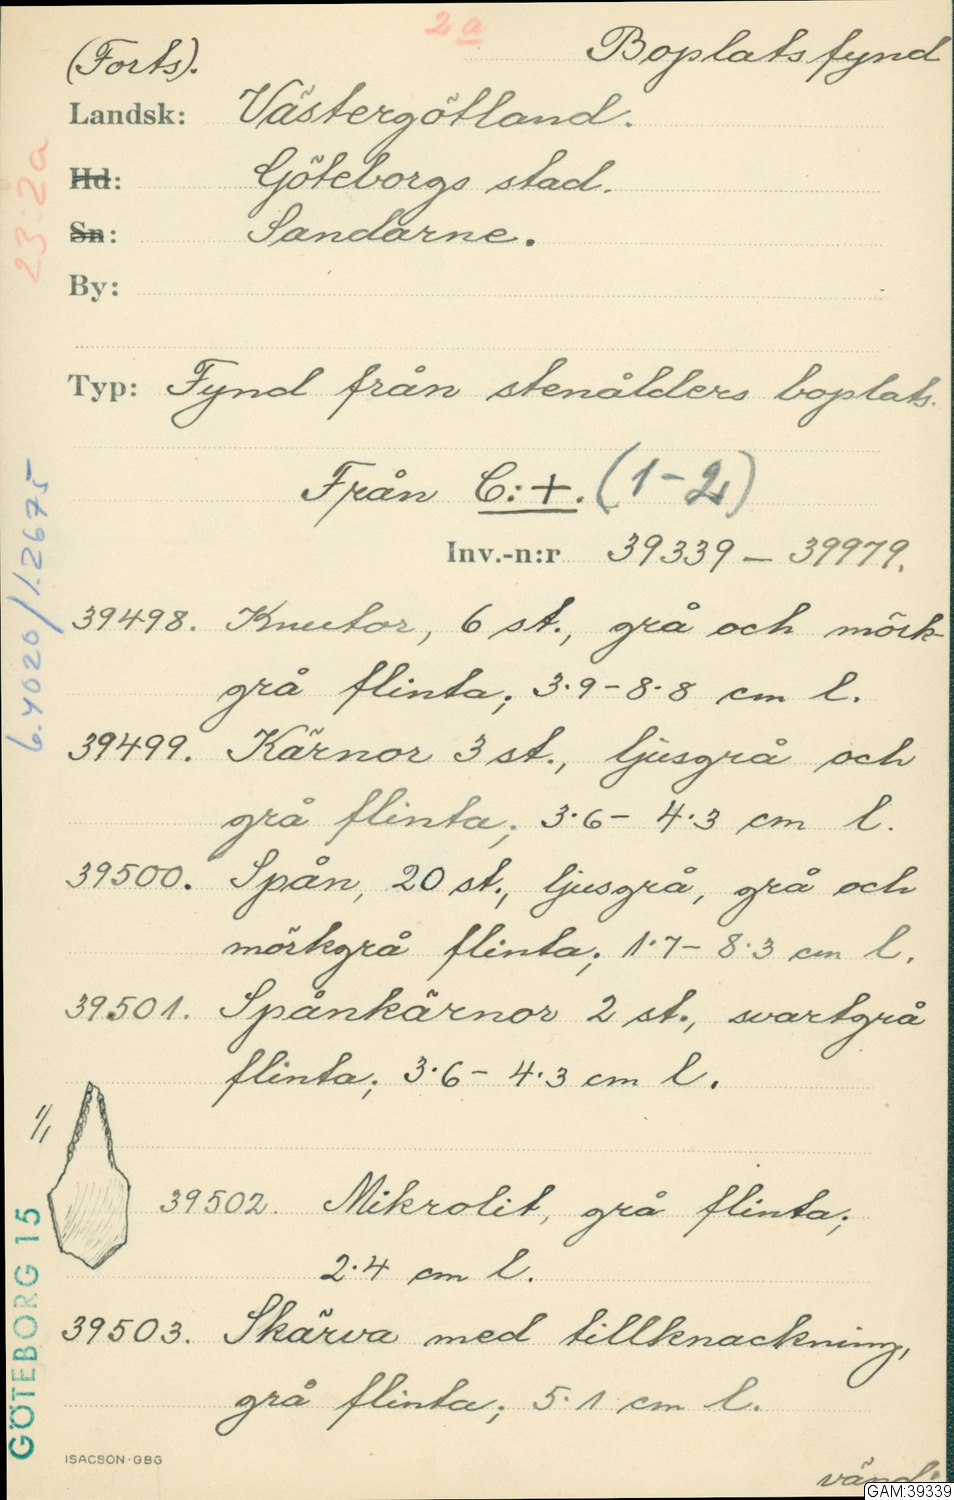 2 a
(Forts). Boplatsfynd
Landsk: Västergötland.
Hd: Göteborgs stad.
Sn: Sandarne.
By:
Typ: Fynd från stenålders boplats.
Från C:+. (1-2)
Inv.-n:r 39339 — 39979.
39498. Knutor, 6 st., grå och mörk-
grå flinta; 3·9-8·8 cm l.
39499. Kärnor 3 st., ljusgrå och
grå flinta; 3·6- 4·3 cm l.
39500. Spån, 20 st., ljusgrå, grå och
mörkgrå flinta; 1·7- 8·3 cm l.
39501. Spånkärnor 2 st., svartgrå
flinta; 3·6- 4·3 cm l.
1/1
39502. Mikrolit, grå flinta;
2·4 cm l.
39503. Skärva med tillknackning,
grå flinta; 5·1 cm l.
ISACSON·GBG
vänd.
23:2a
6.4020/1.2675
GÖTEBORG 15
GAM:39339